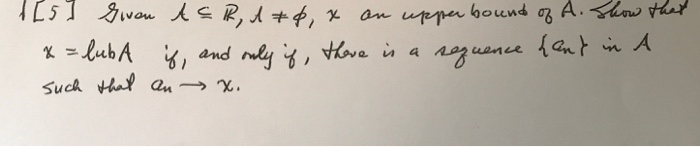 1[5] Given A ⊆ ℝ, A ≠ ϕ, x an upper bound of A. Show that
x = lub A if, and only if, there is a sequence {an} in A
such that an → x.